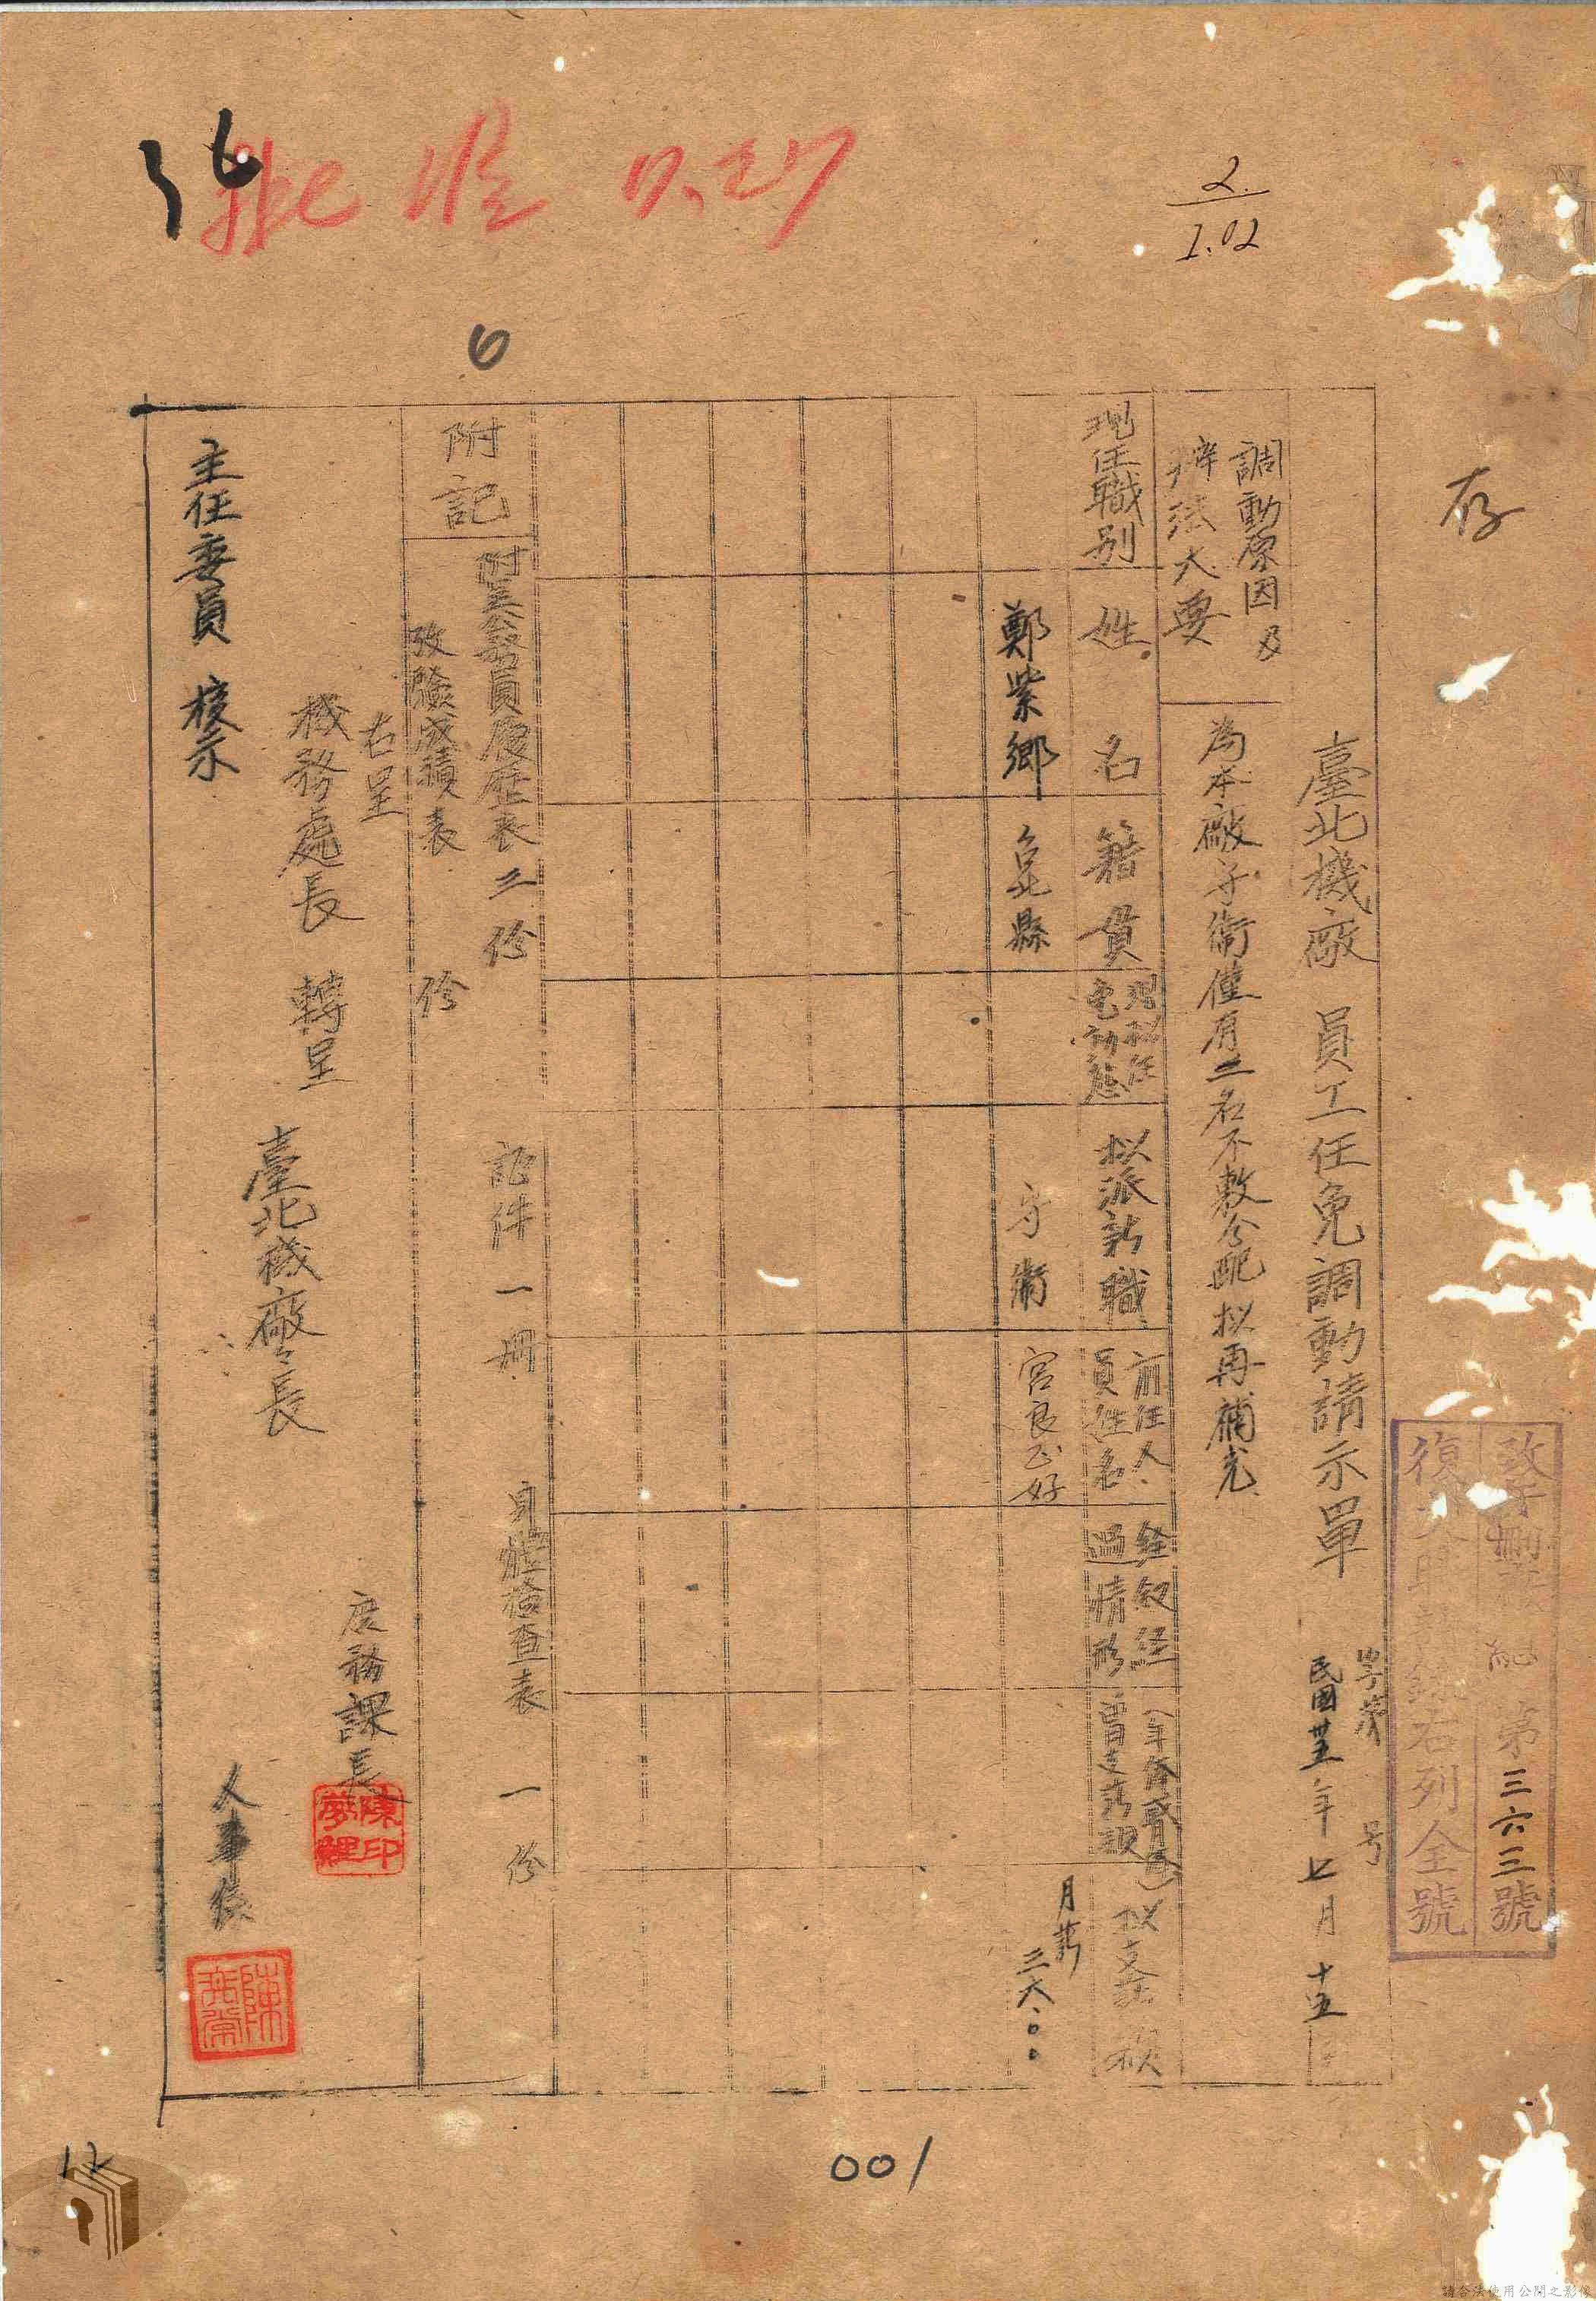 批准 7.27
2.
1.02
6
存
第三六三號
右列全號
臺北機廠 員工任免調動請示單
字第 号
民國卅五年七月十五
調動原因及
擇法大要
為本廠守衛僅有二名不敷分配拟再補充
現任職別
姓名
籍貫
現拟任
免動態
拟派新職
前任人
員姓名
銓叙经
過情形
曾支薪額
拟支薪額
鄭紫鄉
台北縣
守衛
宮良正好
月薪
三六.〇〇
附記
附呈公務員履歷表二份
證件一冊
身體檢查表 一份
攷驗成績表 份
右呈
機務處長 轉呈
主任委員 核示
臺北機廠廠長
庶務課長
陳印夢鯉
人事係
001
12
請合法使用公開之影像